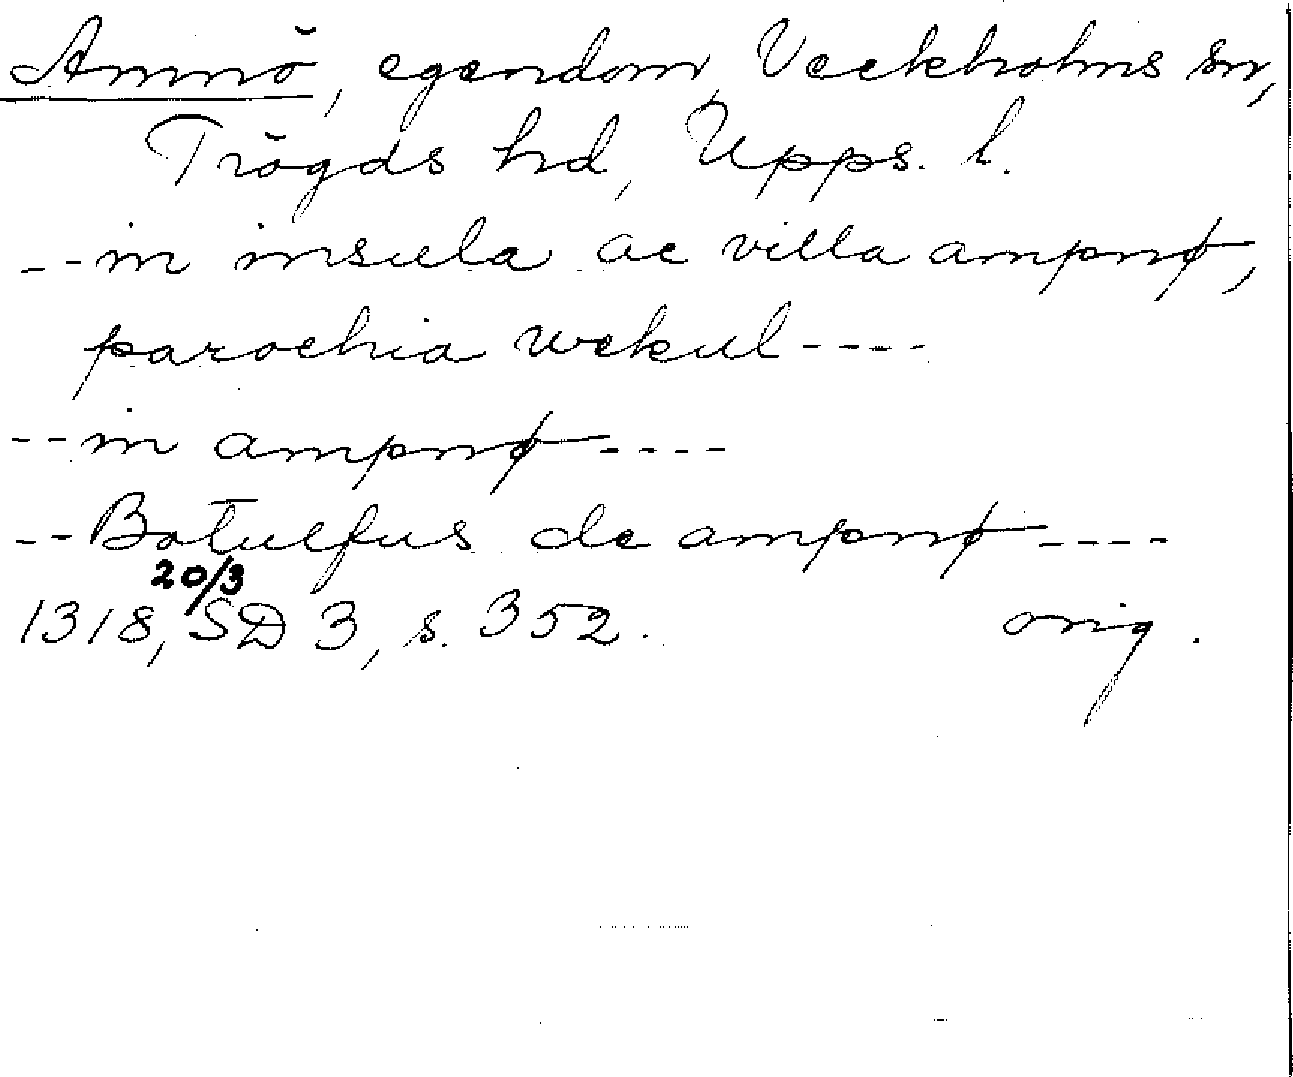 Amnö, egendom, Veckholms sn,
Trögds hd, Upps. l.
--in insula ac villa ampnø,
parochia wekul----
--in ampnø----
--Botulfus de ampnø----
20/3
1318, SD 3, s. 352. orig.